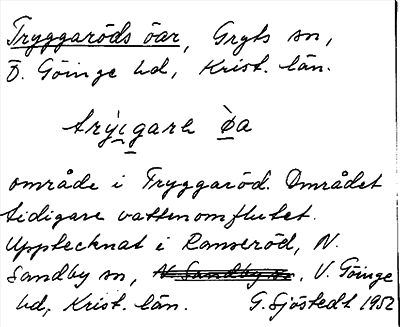 Tryggaröds öar, Gryts sn,
Ö. Göinge hd, Krist. län.
område i Tryggaröd. Området
tidigare vattenomflutet.
Upptecknat i Ranseröd, N.
Sandby sn, N. Sandby sn, V. Göinge
hd, Krist. län. G. Sjöstedt 1952